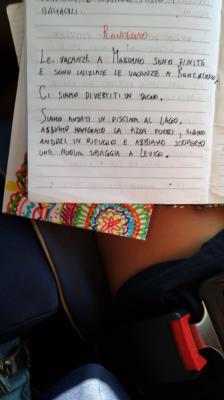 BAGAGLI.
RONCEGNO
LE VACANZE A MARZANO SONO FINITE
E SONO INIZIATE LE VACANZE A RONCEGNO.
CI SIAMO DIVERTITI UN SACCO.
SIAMO ANDATI IN PISCINA AL LAGO,
ABBIAMO MANGIATO LA PIZZA FUORI, SIAMO
ANDATI IN RIFUGIO E ABBIAMO SCOPERTO
UNA NUOVA SPIAGGIA A LEVICO.